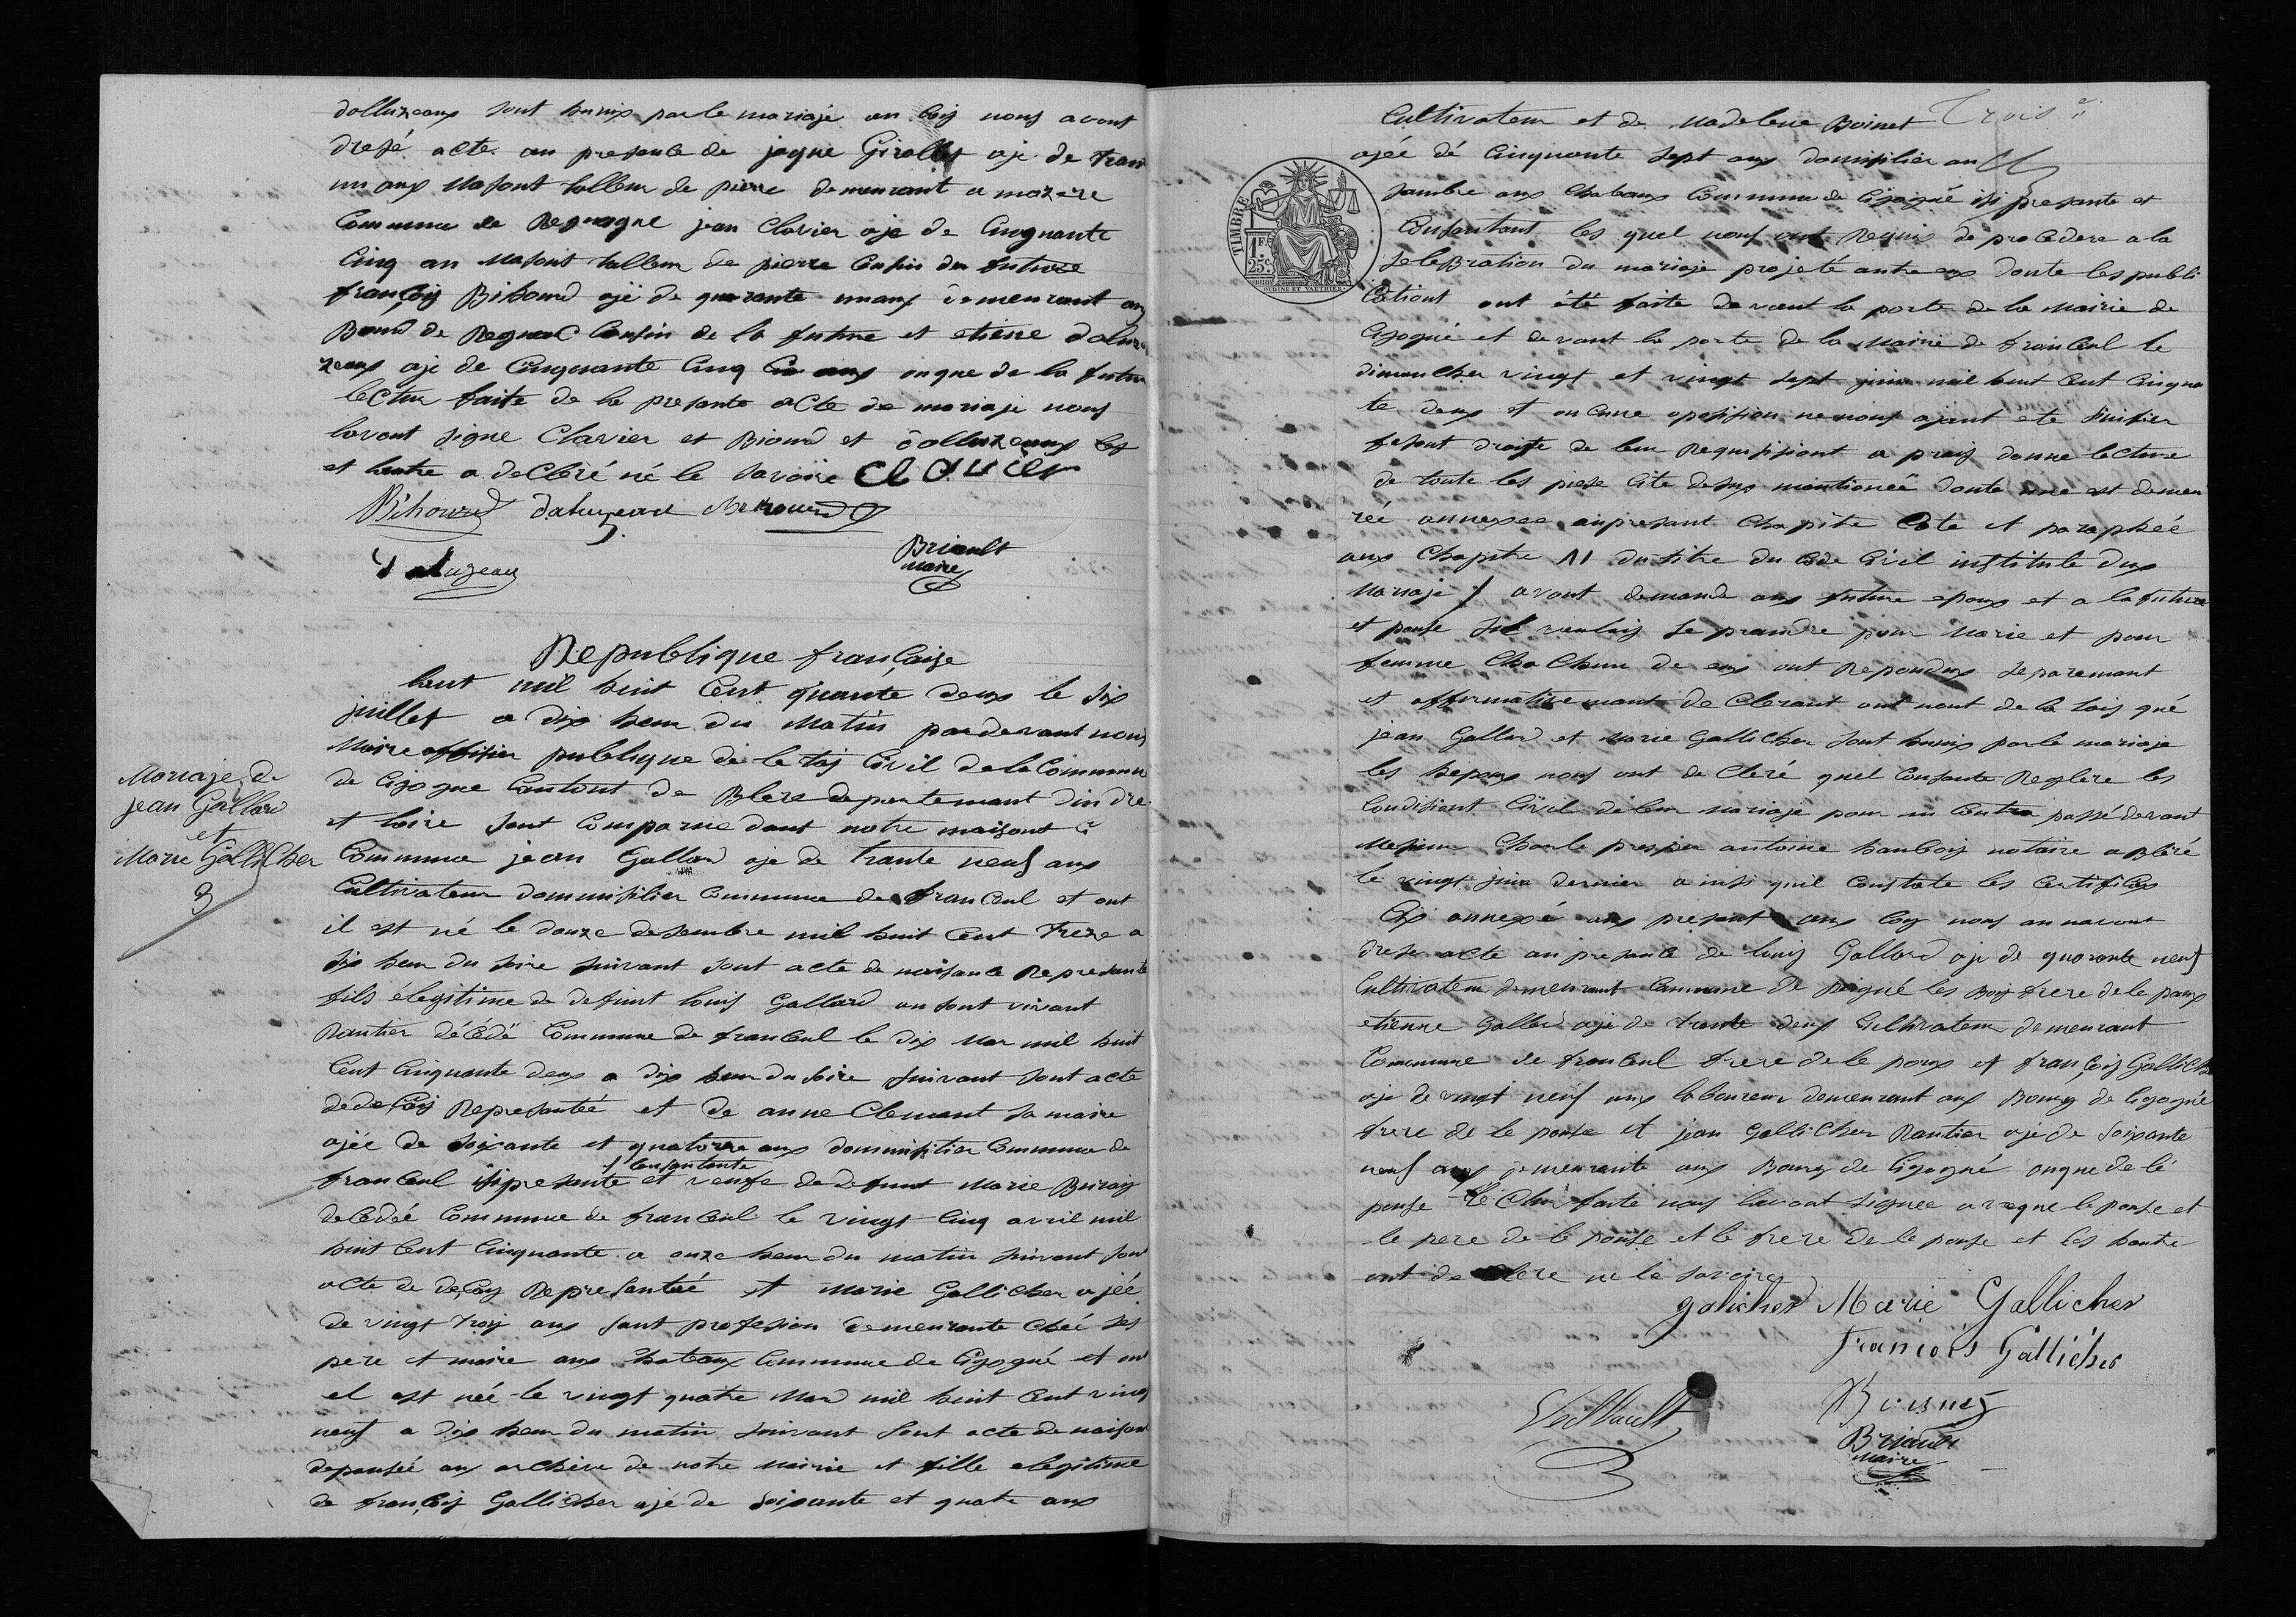 dalluzeaux sont hunis par le mariaje an foij nous avont
dresé acte an presance de jaque Girollet aje de trante
un ans Masont talleur de pierre demeurant a mazere
Commune de Regnagne jean Clavier aje de Cinquante
Cinq an Masont talleur de pierre Cousin du future
françois Bihourd ajé de quarante un ans demeurant aux
Bourd de Regnac Cousin de la future et etiene daluze
zeaux aje de Cinquante Cinq ans onque de la future
lecture faite de la presante acte de mariaje nous
lavont signe Clavier et Biourd et dalluzeaux les
et hautre a decleré né le savoire Clavier
Bihourd daluzeau
daluzeau
Briault
maire
Republique française
Mariaje de
jean Gallard
et
Marie Gallicher
3
lant mil huit Cent quante deux le six
juillet a dix heur du Matin pardevant nous
Maire offisier publique de le taj Civil de la Commune
de Cigogne Cantont de Blere departemant dindre
et loire sont Comparue dant notre maisont
Commune jean Gallard aje de trante neuf ans
Cultivateur dommisilier Commune de franceul et ont
il est né le douze desembre mil huit Cent treze a
six heur du soire suivant sont acte de naisance Represante
fils élegitime de defunt louis Gallard an sont vivant
Rantier décédé Commune de franceul le dix Mar mil huit
Cent Cinquante deux a dix heur du soire suivant sont acte
de decaij Represantée et de anne Clemant sa maire
ajée de soixante et quatorze ans dommisilier Commune de
franceul isi presante et / Consantante veufe de defunt Marie Buray
decedée Commune de franceul le vingt Cinq avril mil
huit Cent Cinquante a onze heur du matin suivant son
acte de deçay Represantée et Marie Gallicher ajeé
de vingt troij ans sant profesion demeurante cheé ses
pere et maire aux chataux Commune de Cigogné et ont
el est née le vingt quatre Mard mil huit Cent vingt
neuf a dix heur du matin suivant sont acte de naisance
deposée aux archive de notre Mairie et fille elegitime
de françois Gallicher ajé de soixante et quatre ans
Trois
Cultivateur et de Madelene Boinet
ajée dé Cinquante sept ans domisilier an
sambre aux Chataux Commune de Cigogné isi presante et
Consantant les quel nous ont Requis de procedere a la
seleBration du mariaje projeté antre eux donte les publi
Cationt ont été faite devant la porte de la Mairie de
Cigogné et devant la porte de la Mairie de franceul le
dimancher vingt et vingt sept juin mil huit Cent Cinquan
te deux et aucune oposision ne nous ajant ete sinifier
fesant droite de leur Requisisiont a praij donne lecture
de toute les piese Cite desus mantioneé donte une est demeu
reé annexee aupresant Chapitre Cote et parapheé
aux Chapitre VI du titre du Code Civil institule dux
Mariaje / avont demande aux future epoux et a la future
et pouse sil veulois se prandre pour Marie et pour
femme ChaChun de eux ont Repondux separemant
et affirmativemant de Clerant ont nont de la loij qué
jean Gallard et Marie Gallicher sont hunis par le mariaje
les hepoux nous ont de Cleré quel Consante Reglere les
Condisiont Civil de leur mariaje pour un Contra passé devant
Mesieur Charle prosper antoine hauboij notaire a Bléré
le vingt juin dernier ainsi quil Constate les Certificas
Cij annexé aux presant aux Coij nous an navont
drese acte an presance de louis Gallard aje de quarante neuf
Cultivateur demeurant Commune de poigné les Boij frere de le poux
etienne Gallard aje de trante deux Cultivateur demeurant
Commune de franceul frere de le poux et françois Gallicher
aje de vingt neuf ans laboureur demeurant aux Bourg de Cigogné
frere de le pouse et jean Gallicher Rantier aje de soixante
neuf ans demeurante aux Bourg de Cigogné onque de lé
pouse le Chur faite nous lavont signee a veque le pouse et
le pere de le pouse et le frere de le pouse et les hautre
ont declere ne le savoire
galicher Marie Gallicher
François Gallicher
Veillault
Boisnet
Briault
maire
TIMBRE
1F.
25C.
OUDINE ET VAUTHIER